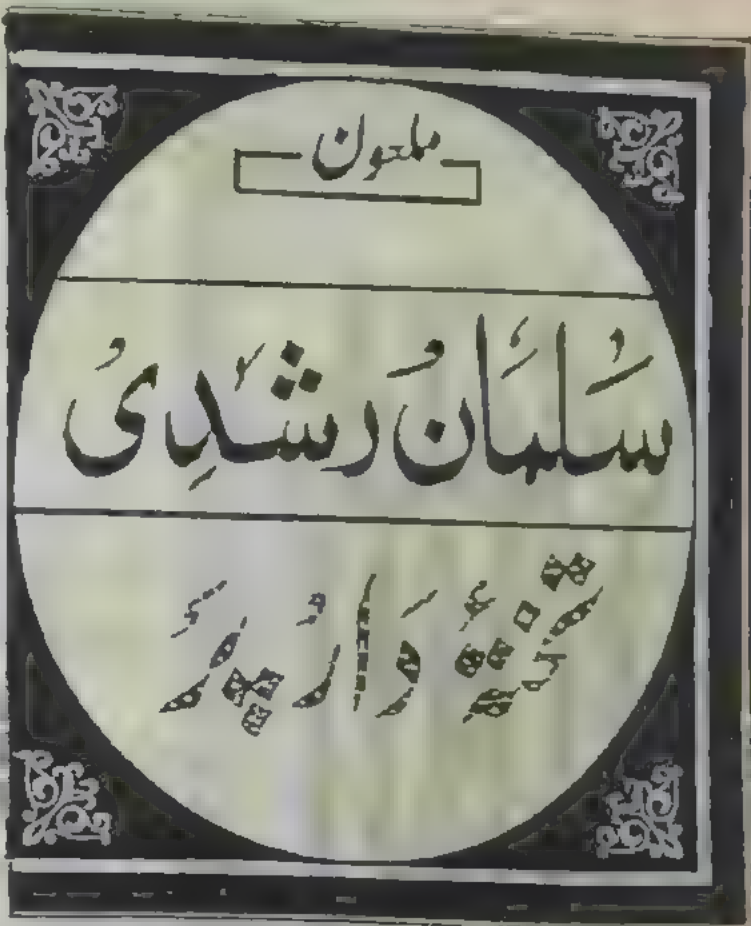 ملعون
سَلمَانُ رشدِیُ
تختۂ دَارُ پرَ